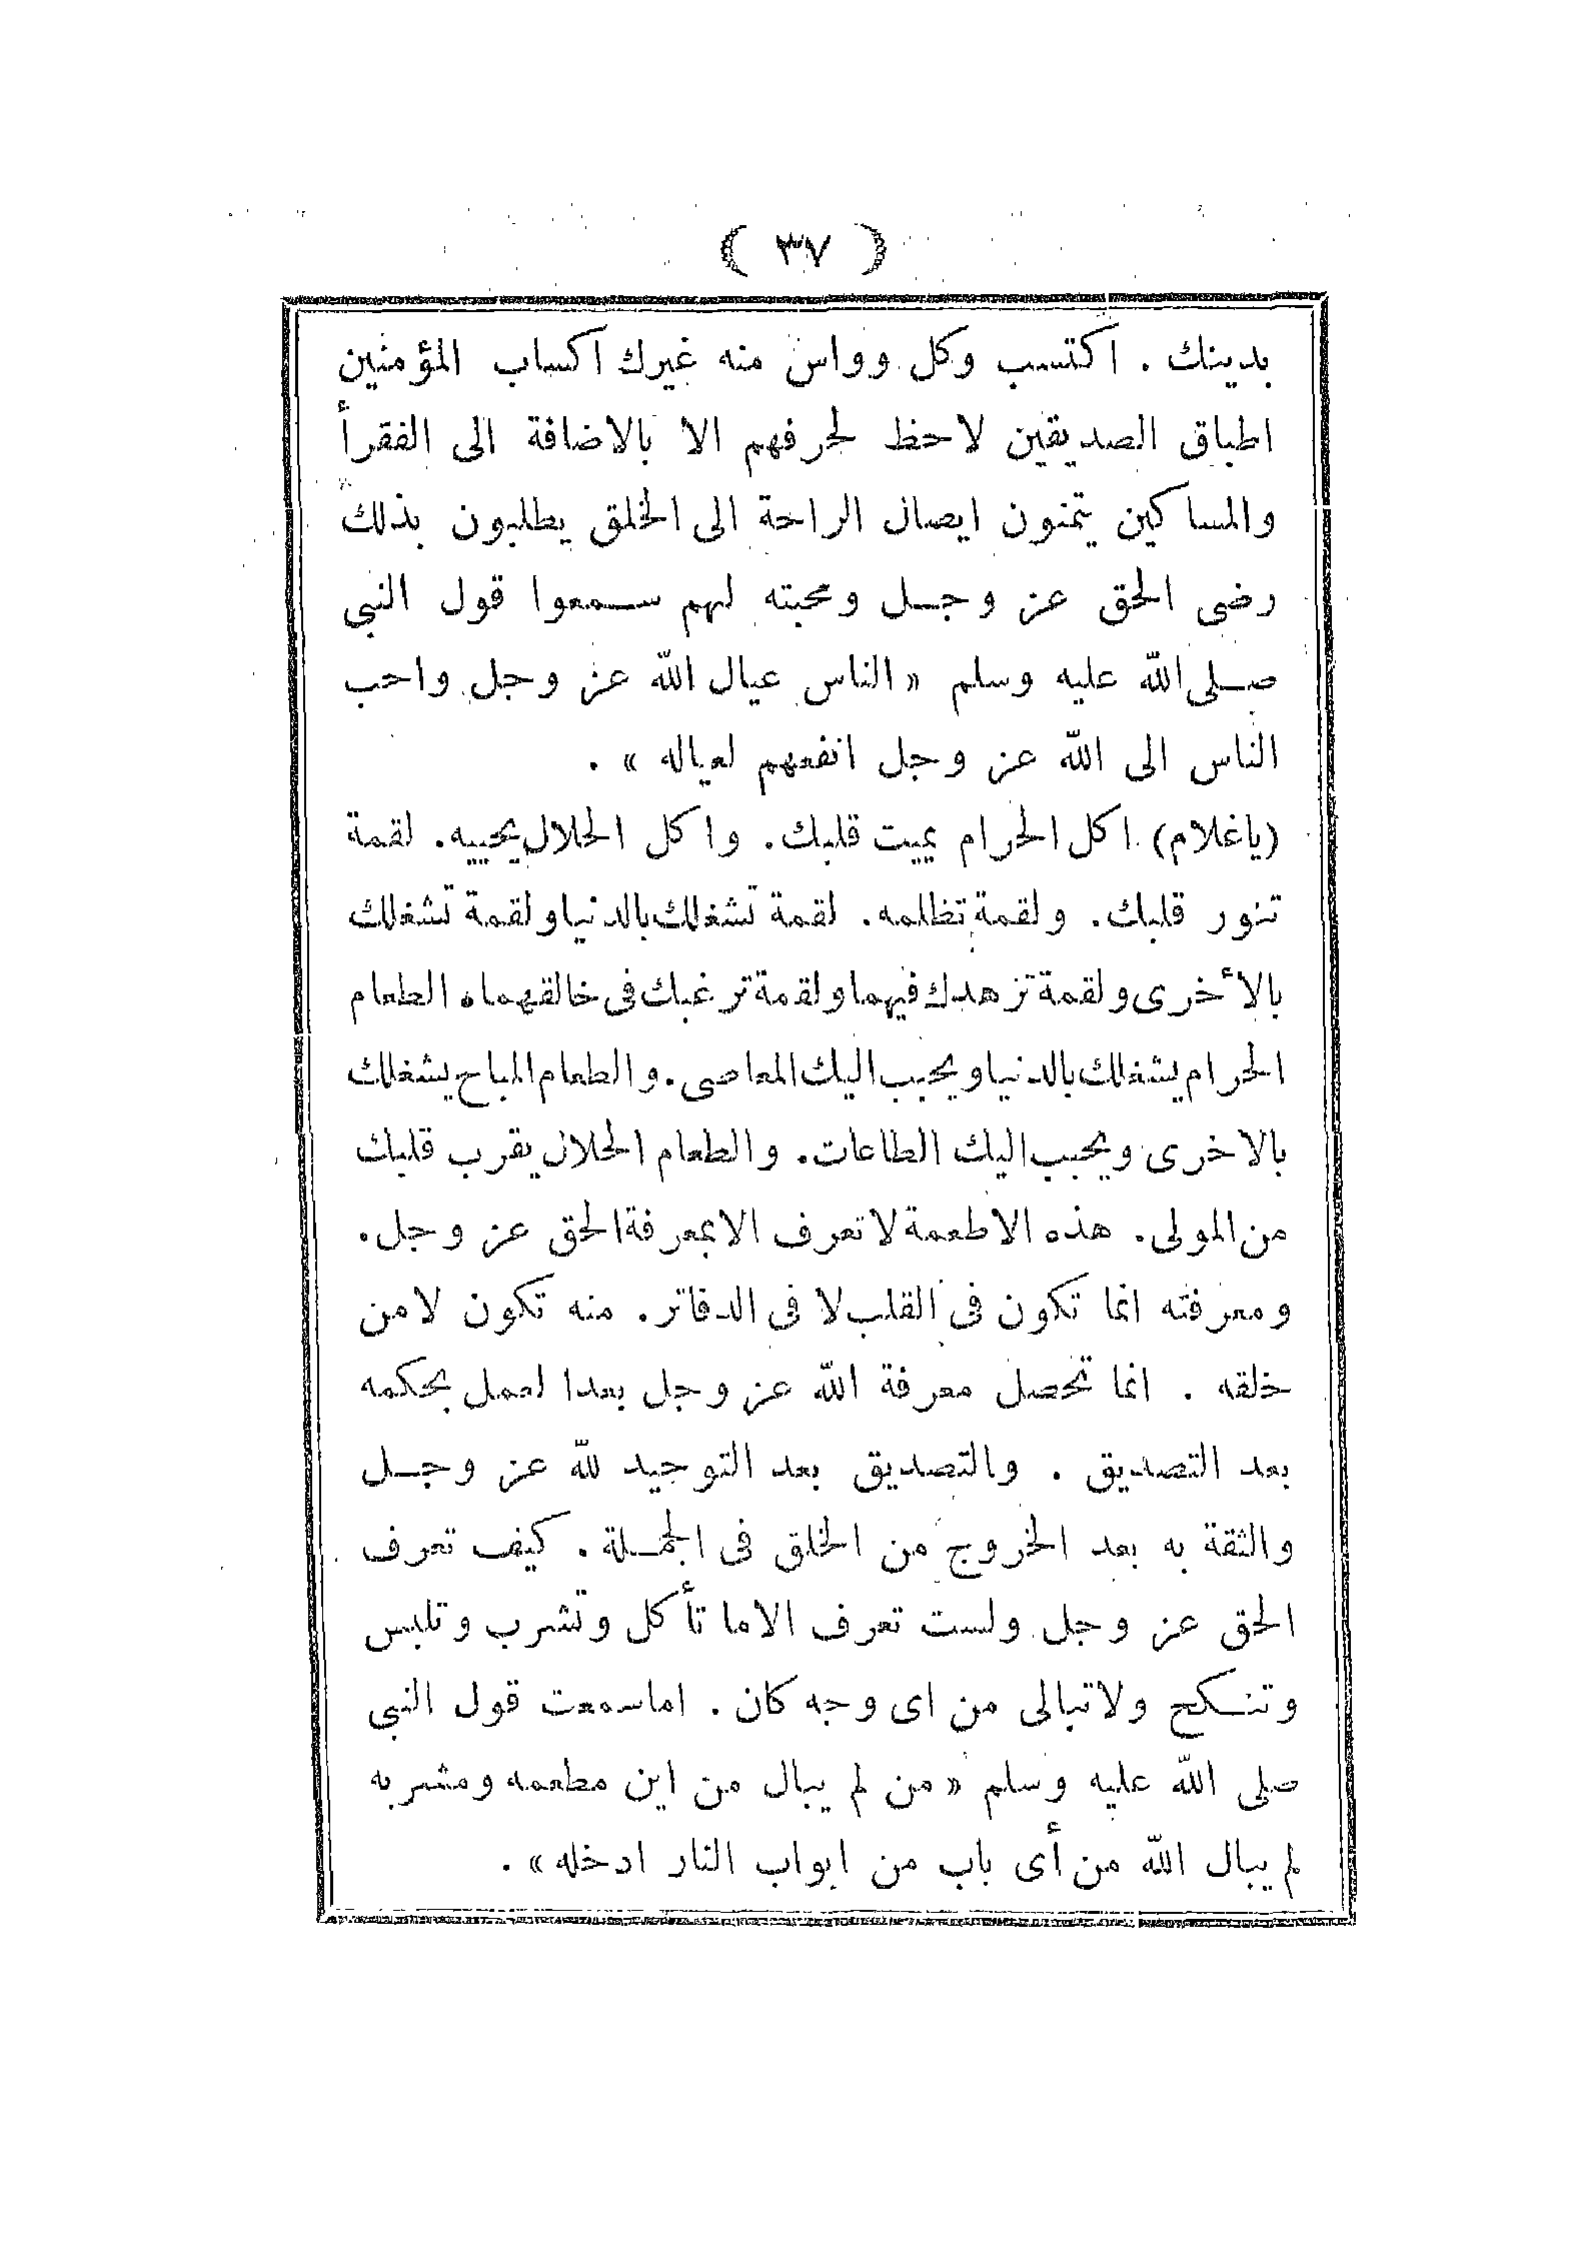 ( ٣٧ )
بدينك . اكتسب وكل وواس منه غيرك اكساب المؤمنين
اطباق الصديقين لاحظ لحرفهم الا بالاضافة الى الفقرأ
والمساكين يتمنون ايصال الراحة الى الخلق يطلبون بذلك
رضى الحق عز وجل ومحبته لهم سمعوا قول النبى
صلى الله عليه وسلم « الناس عيال الله عز وجل واحب
الناس الى الله عز وجل انفعهم لعياله » .
(ياغلام) اكل الحرام يميت قلبك. واكل الحلال يحييه. لقمة
تنور قلبك. ولقمة تظلمه. لقمة تشغلك بالدنيا ولقمة تشغلك
بالأخرى ولقمة تزهدك فيهما ولقمة ترغبك فى خالقهما. الطعام
الحرام يشغلك بالدنيا ويحبب اليك المعاصى. والطعام المباح يشغلك
بالاخرى ويحبب اليك الطاعات. والطعام الحلال يقرب قلبك
من المولى. هذه الاطعمة لا تعرف الا بمعرفة الحق عز وجل.
ومعرفته انما تكون فى القلب لا فى الدفاتر. منه تكون لا من
خلقه . انما تحصل معرفة الله عز وجل بعدا لعمل بحكمه
بعد التصديق . والتصديق بعد التوحيد لله عز وجل
والثقة به بعد الخروج من الخلق فى الجملة . كيف تعرف
الحق عز وجل ولست تعرف الا ما تأكل وتشرب وتلبس
وتنكح ولا تبالى من اى وجه كان . اما سمعت قول النبى
صلى الله عليه وسلم « من لم يبال من اين مطعمه ومشربه
لم يبال الله من أى باب من ابواب النار ادخله » .